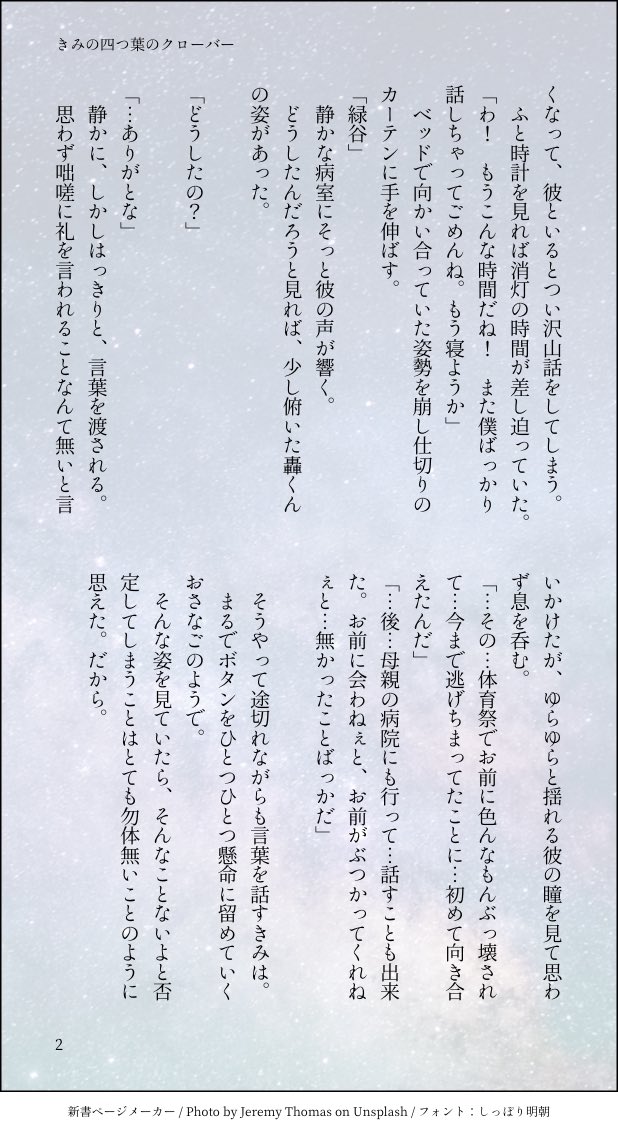 きみの四つ葉のクローバー
くなって、彼といるとつい沢山話をしてしまう。
ふと時計を見れば消灯の時間が差し迫っていた。
「わ!　もうこんな時間だね!　また僕ばっかり
話しちゃってごめんね。もう寝ようか」
ベッドで向かい合っていた姿勢を崩し仕切りの
カーテンに手を伸ばす。
「緑谷」
静かな病室にそっと彼の声が響く。
どうしたんだろうと見れば、少し俯いた轟くん
の姿があった。
「どうしたの?」
「…ありがとな」
静かに、しかしはっきりと、言葉を渡される。
思わず咄嗟に礼を言われることなんて無いと言
いかけたが、ゆらゆらと揺れる彼の瞳を見て思わ
ず息を呑む。
「…その…体育祭でお前に色んなもんぶっ壊され
て…今まで逃げちまってたことに…初めて向き合
えたんだ」
「…後…母親の病院にも行って…話すことも出来
た。お前に会わねぇと、お前がぶつかってくれね
ぇと…無かったことばっかだ」
そうやって途切れながらも言葉を話すきみは。
まるでボタンをひとつひとつ懸命に留めていく
おさなごのようで。
そんな姿を見ていたら、そんなことないよと否
定してしまうことはとても勿体無いことのように
思えた。だから。
2
新書ページメーカー / Photo by Jeremy Thomas on Unsplash / フォント：しっぽり明朝